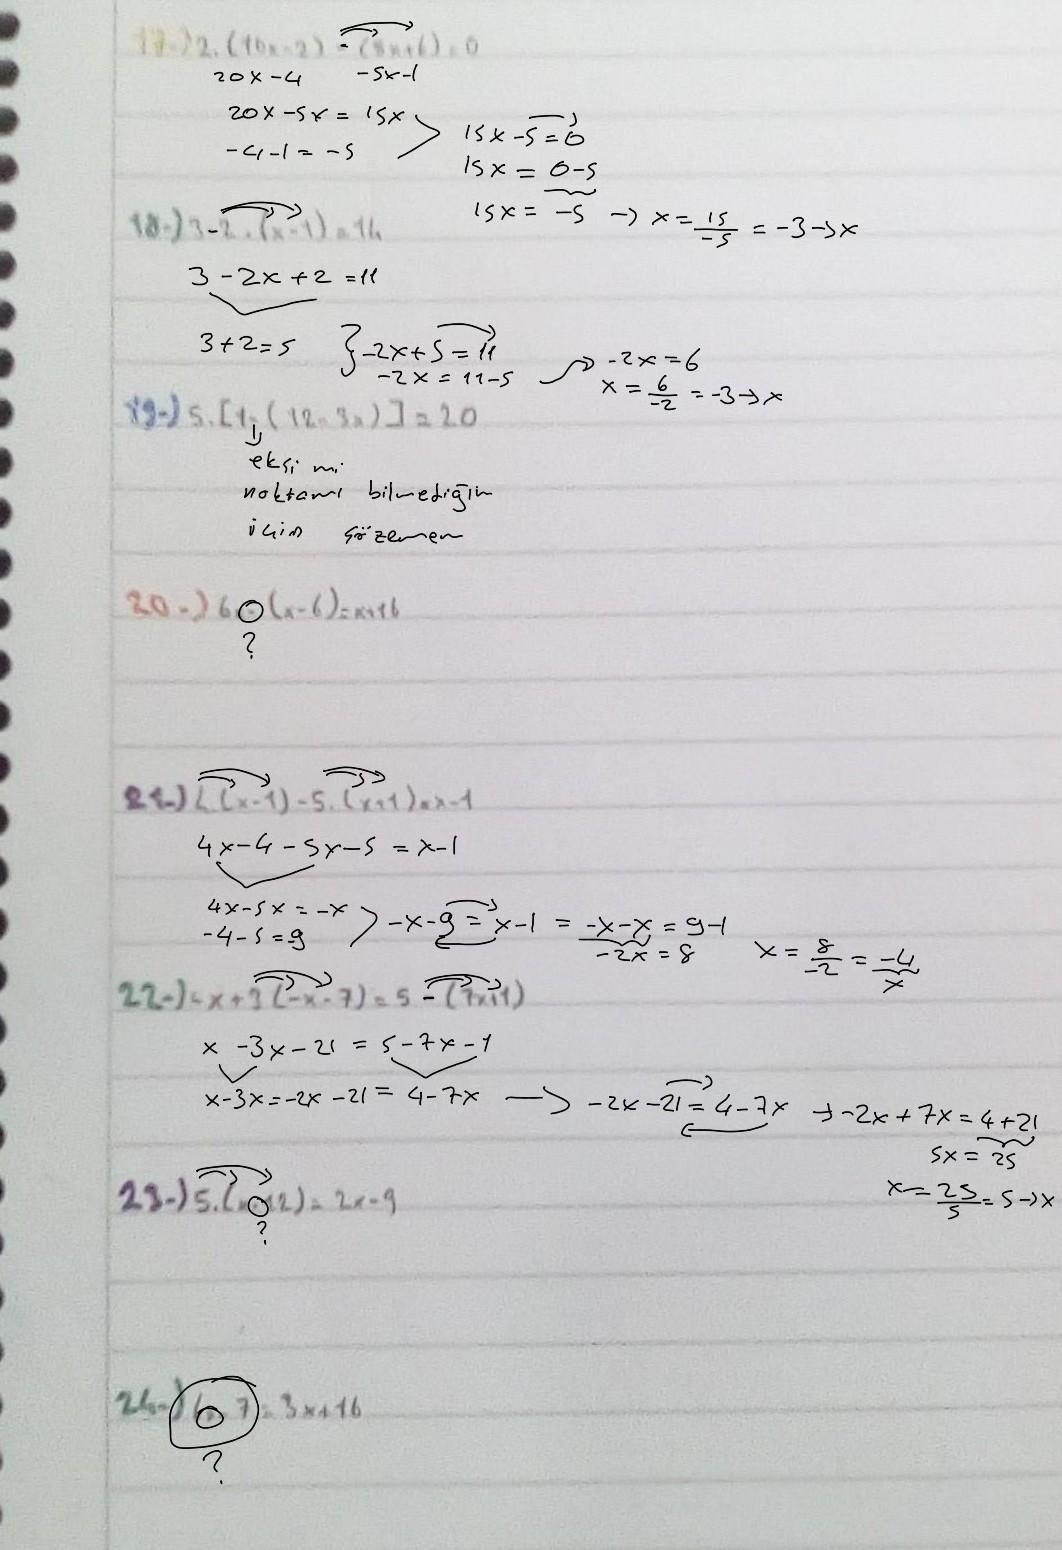 17-) 2.(10x-2) - (5x+6)=0
20x-4 -5x-1
20x-5x = 15x
-4-1 = -5
15x-5=0
15x = 0-5
15x = -5 → x = 15/-5 = -3→x
18-) 3-2.(x-1)=14
3-2x+2=11
3+2=5
-2x+5=11
-2x=11-5
-2x=6
x = 6/-2 = -3→x
19-) 5.[1-(12-3x)]=20
eksi mi
noktamı bilmediğim
için çözemem
20-) 6 (x-6)=x+16
?
21-) 4(x-1)-5.(x+1)=x-1
4x-4-5x-5=x-1
4x-5x=-x
-4-5=9
-x-9=x-1 = -x-x=9-1
-2x=8
x = 8/-2 = -4
x
22-) x+3(-x-7)=5-(7x+1)
x -3x-21 = 5-7x-1
x-3x=-2x -21= 4-7x → -2x-21=4-7x → -2x+7x=4+21
5x=25
x=25/5=5→x
23-) 5.( 12)=2x-9
?
24-) 7=3x+16
?